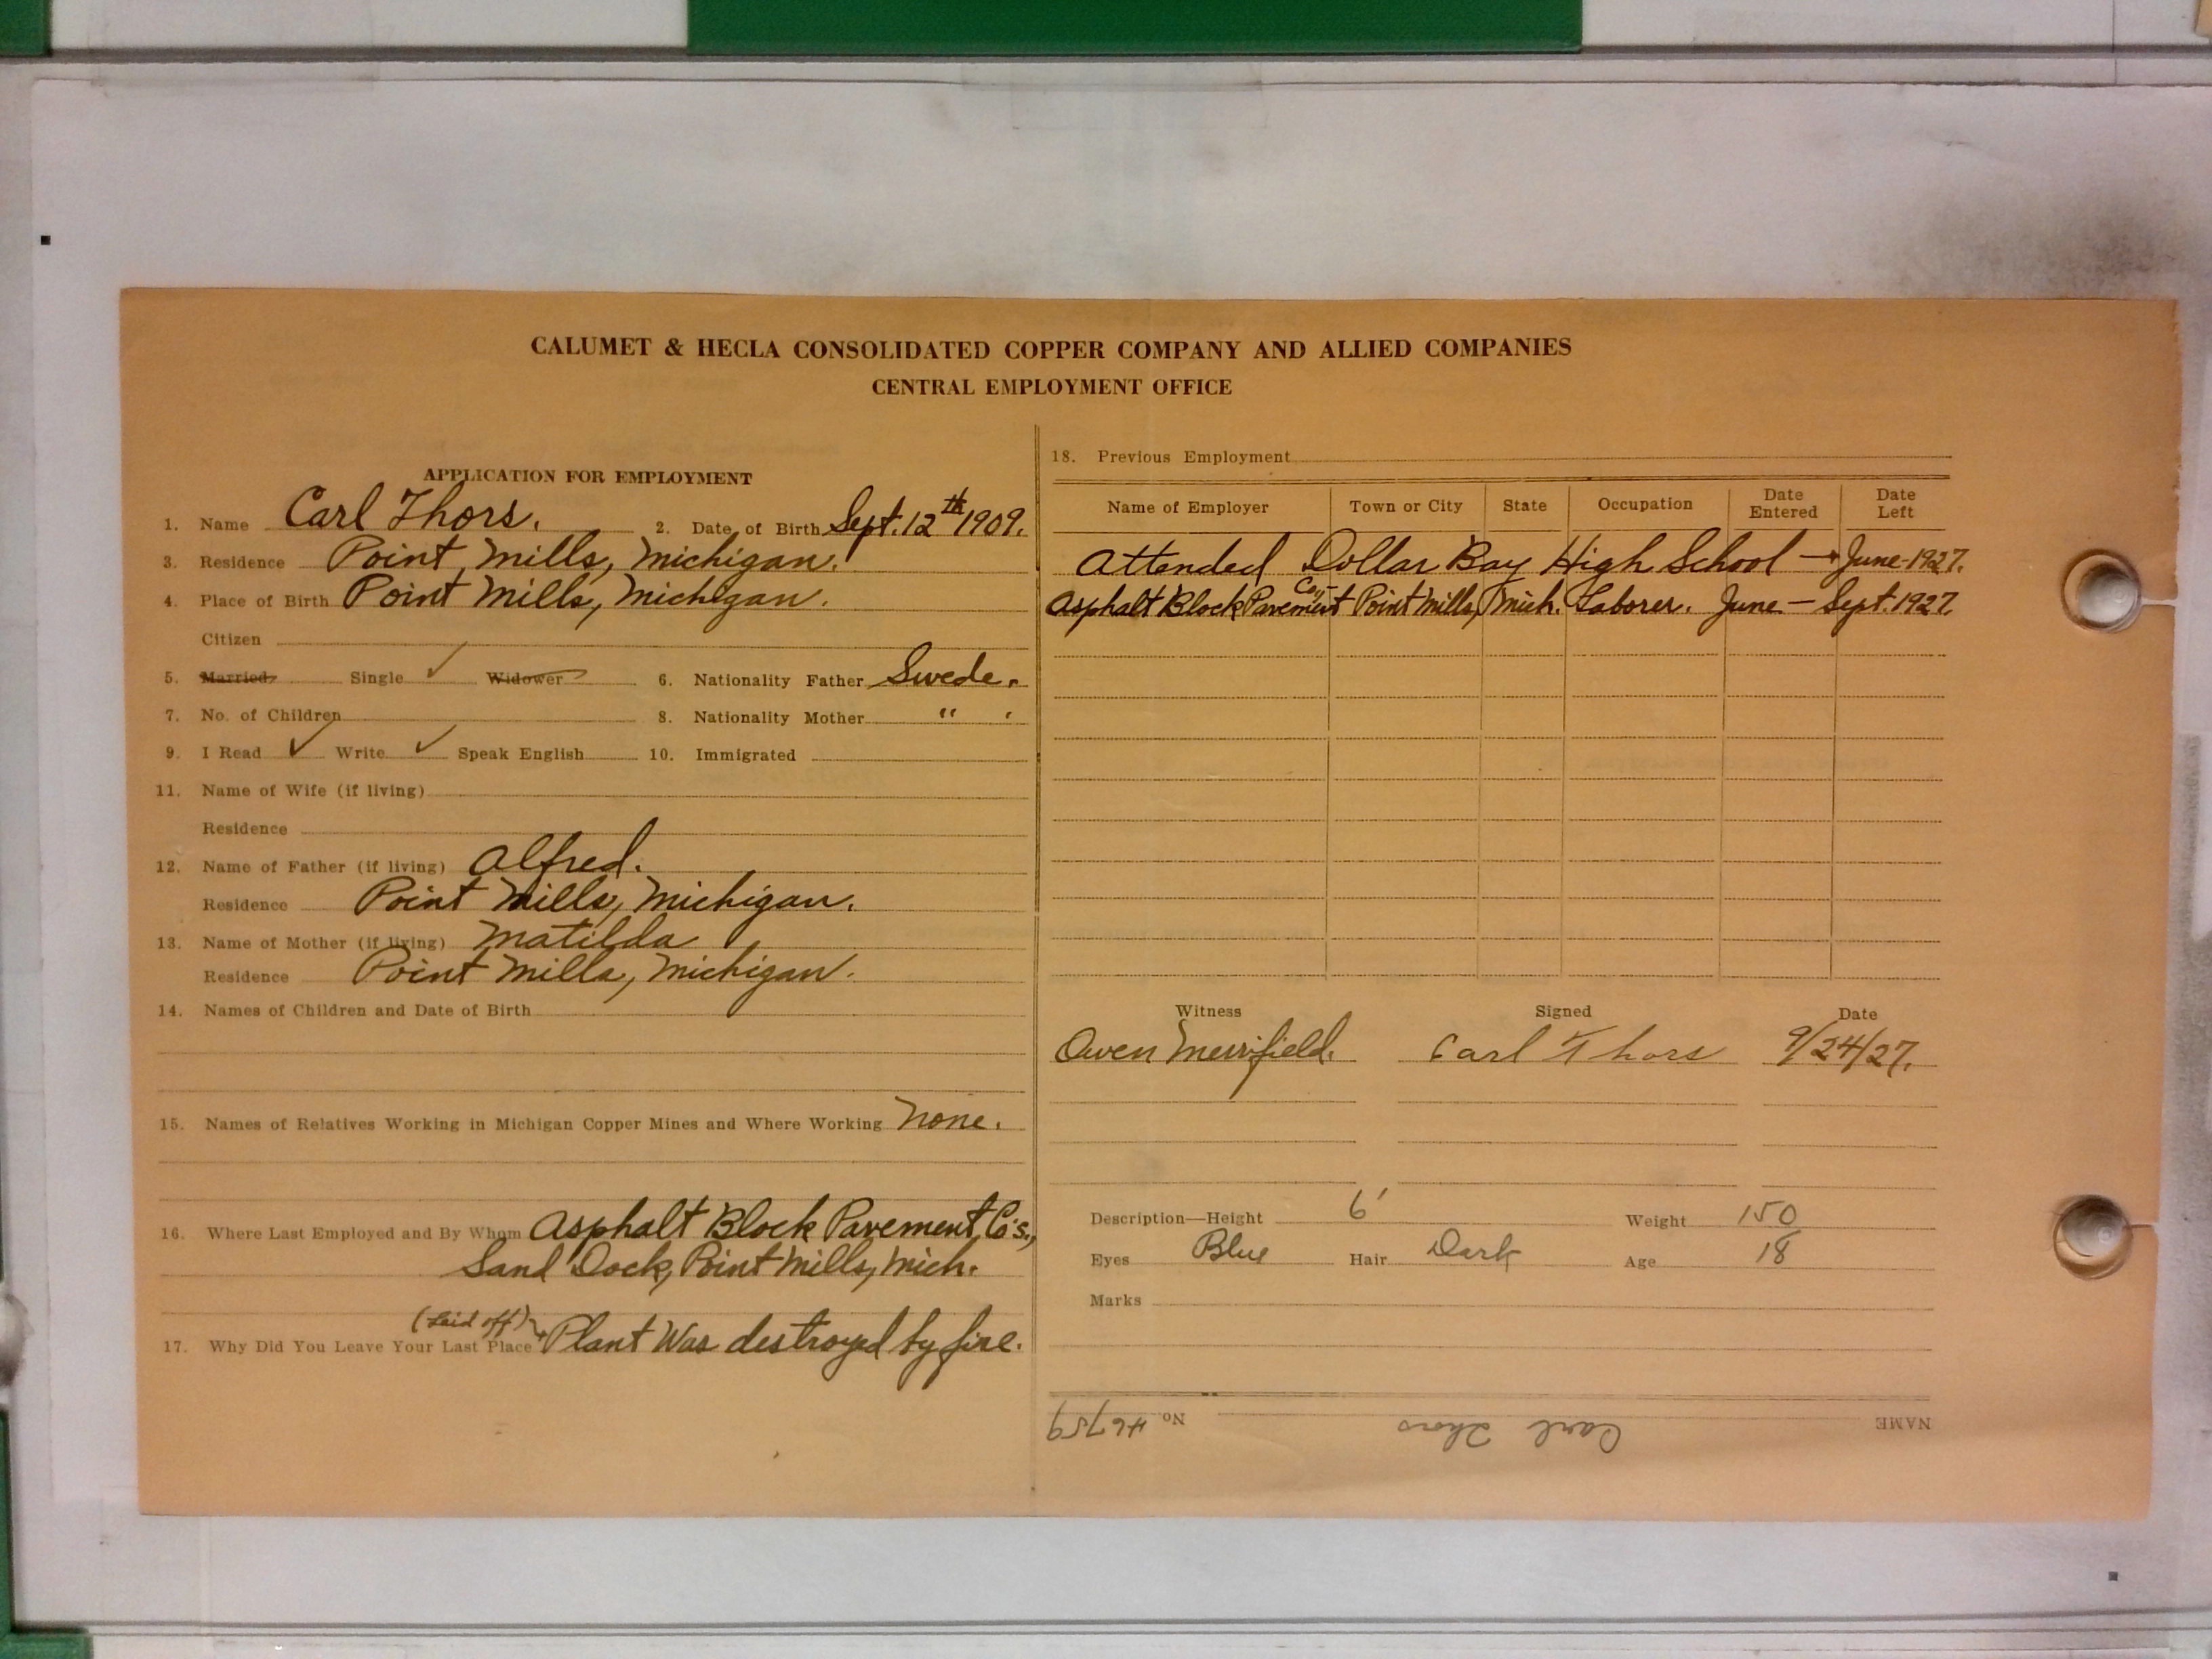 CALUMET & HECLA CONSOLIDATED COPPER COMPANY AND ALLIED COMPANIES
CENTRAL EMPLOYMENT OFFICE
APPLICATION FOR EMPLOYMENT
1. Name Carl Thors. 2. Date of Birth Sept. 12th 1909.
3. Residence Point Mills, Michigan.
4. Place of Birth Point Mills, Michigan.
Citizen
5. Married Single ✓ Widower 6. Nationality Father Swede.
7. No. of Children 8. Nationality Mother "
9. I Read ✓ Write ✓ Speak English 10. Immigrated
11. Name of Wife (if living)
Residence
12. Name of Father (if living) Alfred.
Residence Point Mills, Michigan.
13. Name of Mother (if living) Matilda
Residence Point Mills, Michigan.
14. Names of Children and Date of Birth
15. Names of Relatives Working in Michigan Copper Mines and Where Working None.
16. Where Last Employed and By Whom Asphalt Block Pavement Co's.,
Sand Dock, Point Mills, Mich.
(Laid off)
17. Why Did You Leave Your Last Place Plant Was destroyed by fire.
18. Previous Employment
Name of Employer Town or City State Occupation Date Entered Date Left
Attended Dollar Bay High School → June-1927.
Asphalt Block Pavement Coy- Point Mills, Mich. Laborer. June - Sept. 1927.
Witness Signed Date
Owen Merrifield. Carl Thors 9/24/27.
Description—Height 6' Weight 150
Eyes Blue Hair Dark Age 18
Marks
NAME Carl Thors No. 46759